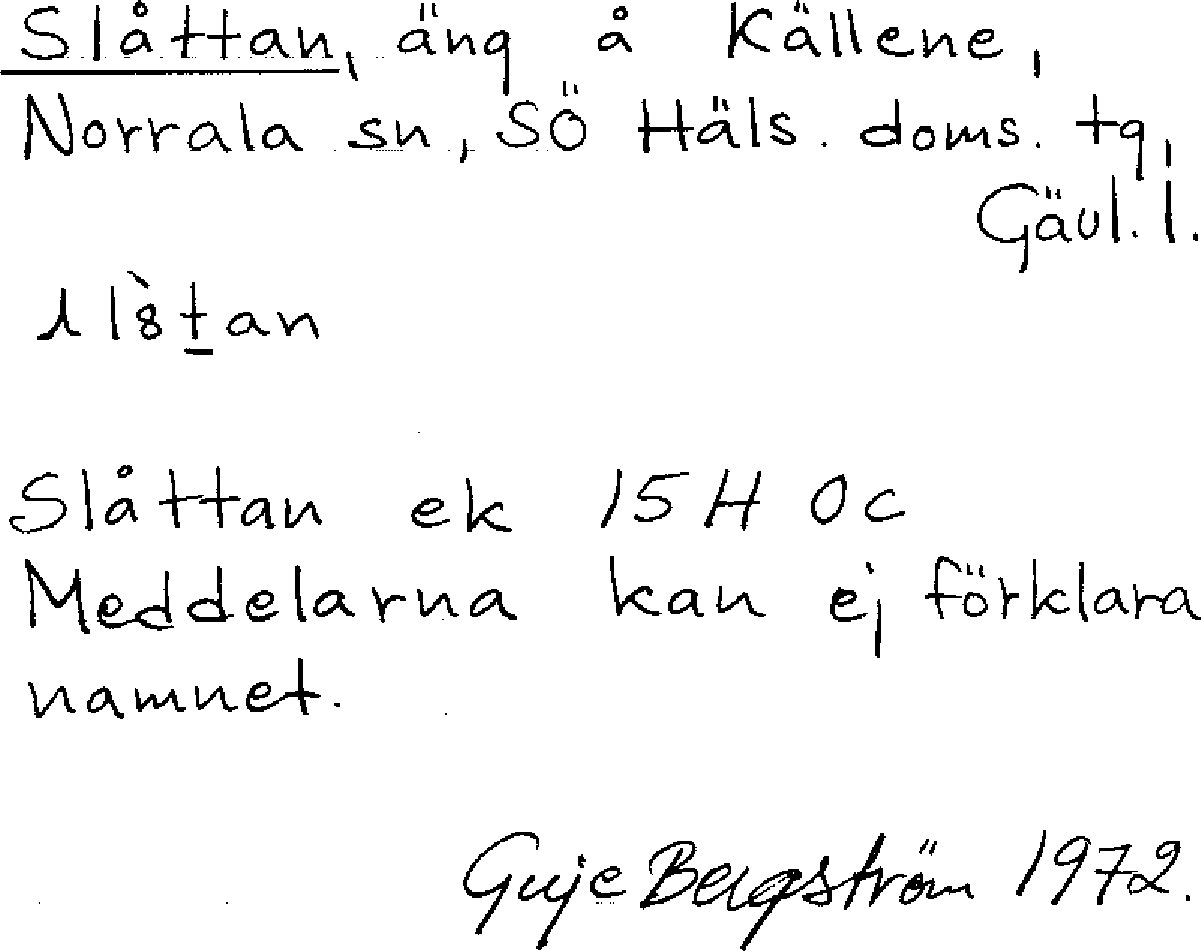 Slåttan, äng å Källene,
Norrala sn, SÖ Häls. doms. tg,
Gävl. l.
Slåttan ek 15H 0c
Meddelarna kan ej förklara
namnet.
Guje Bergström 1972.